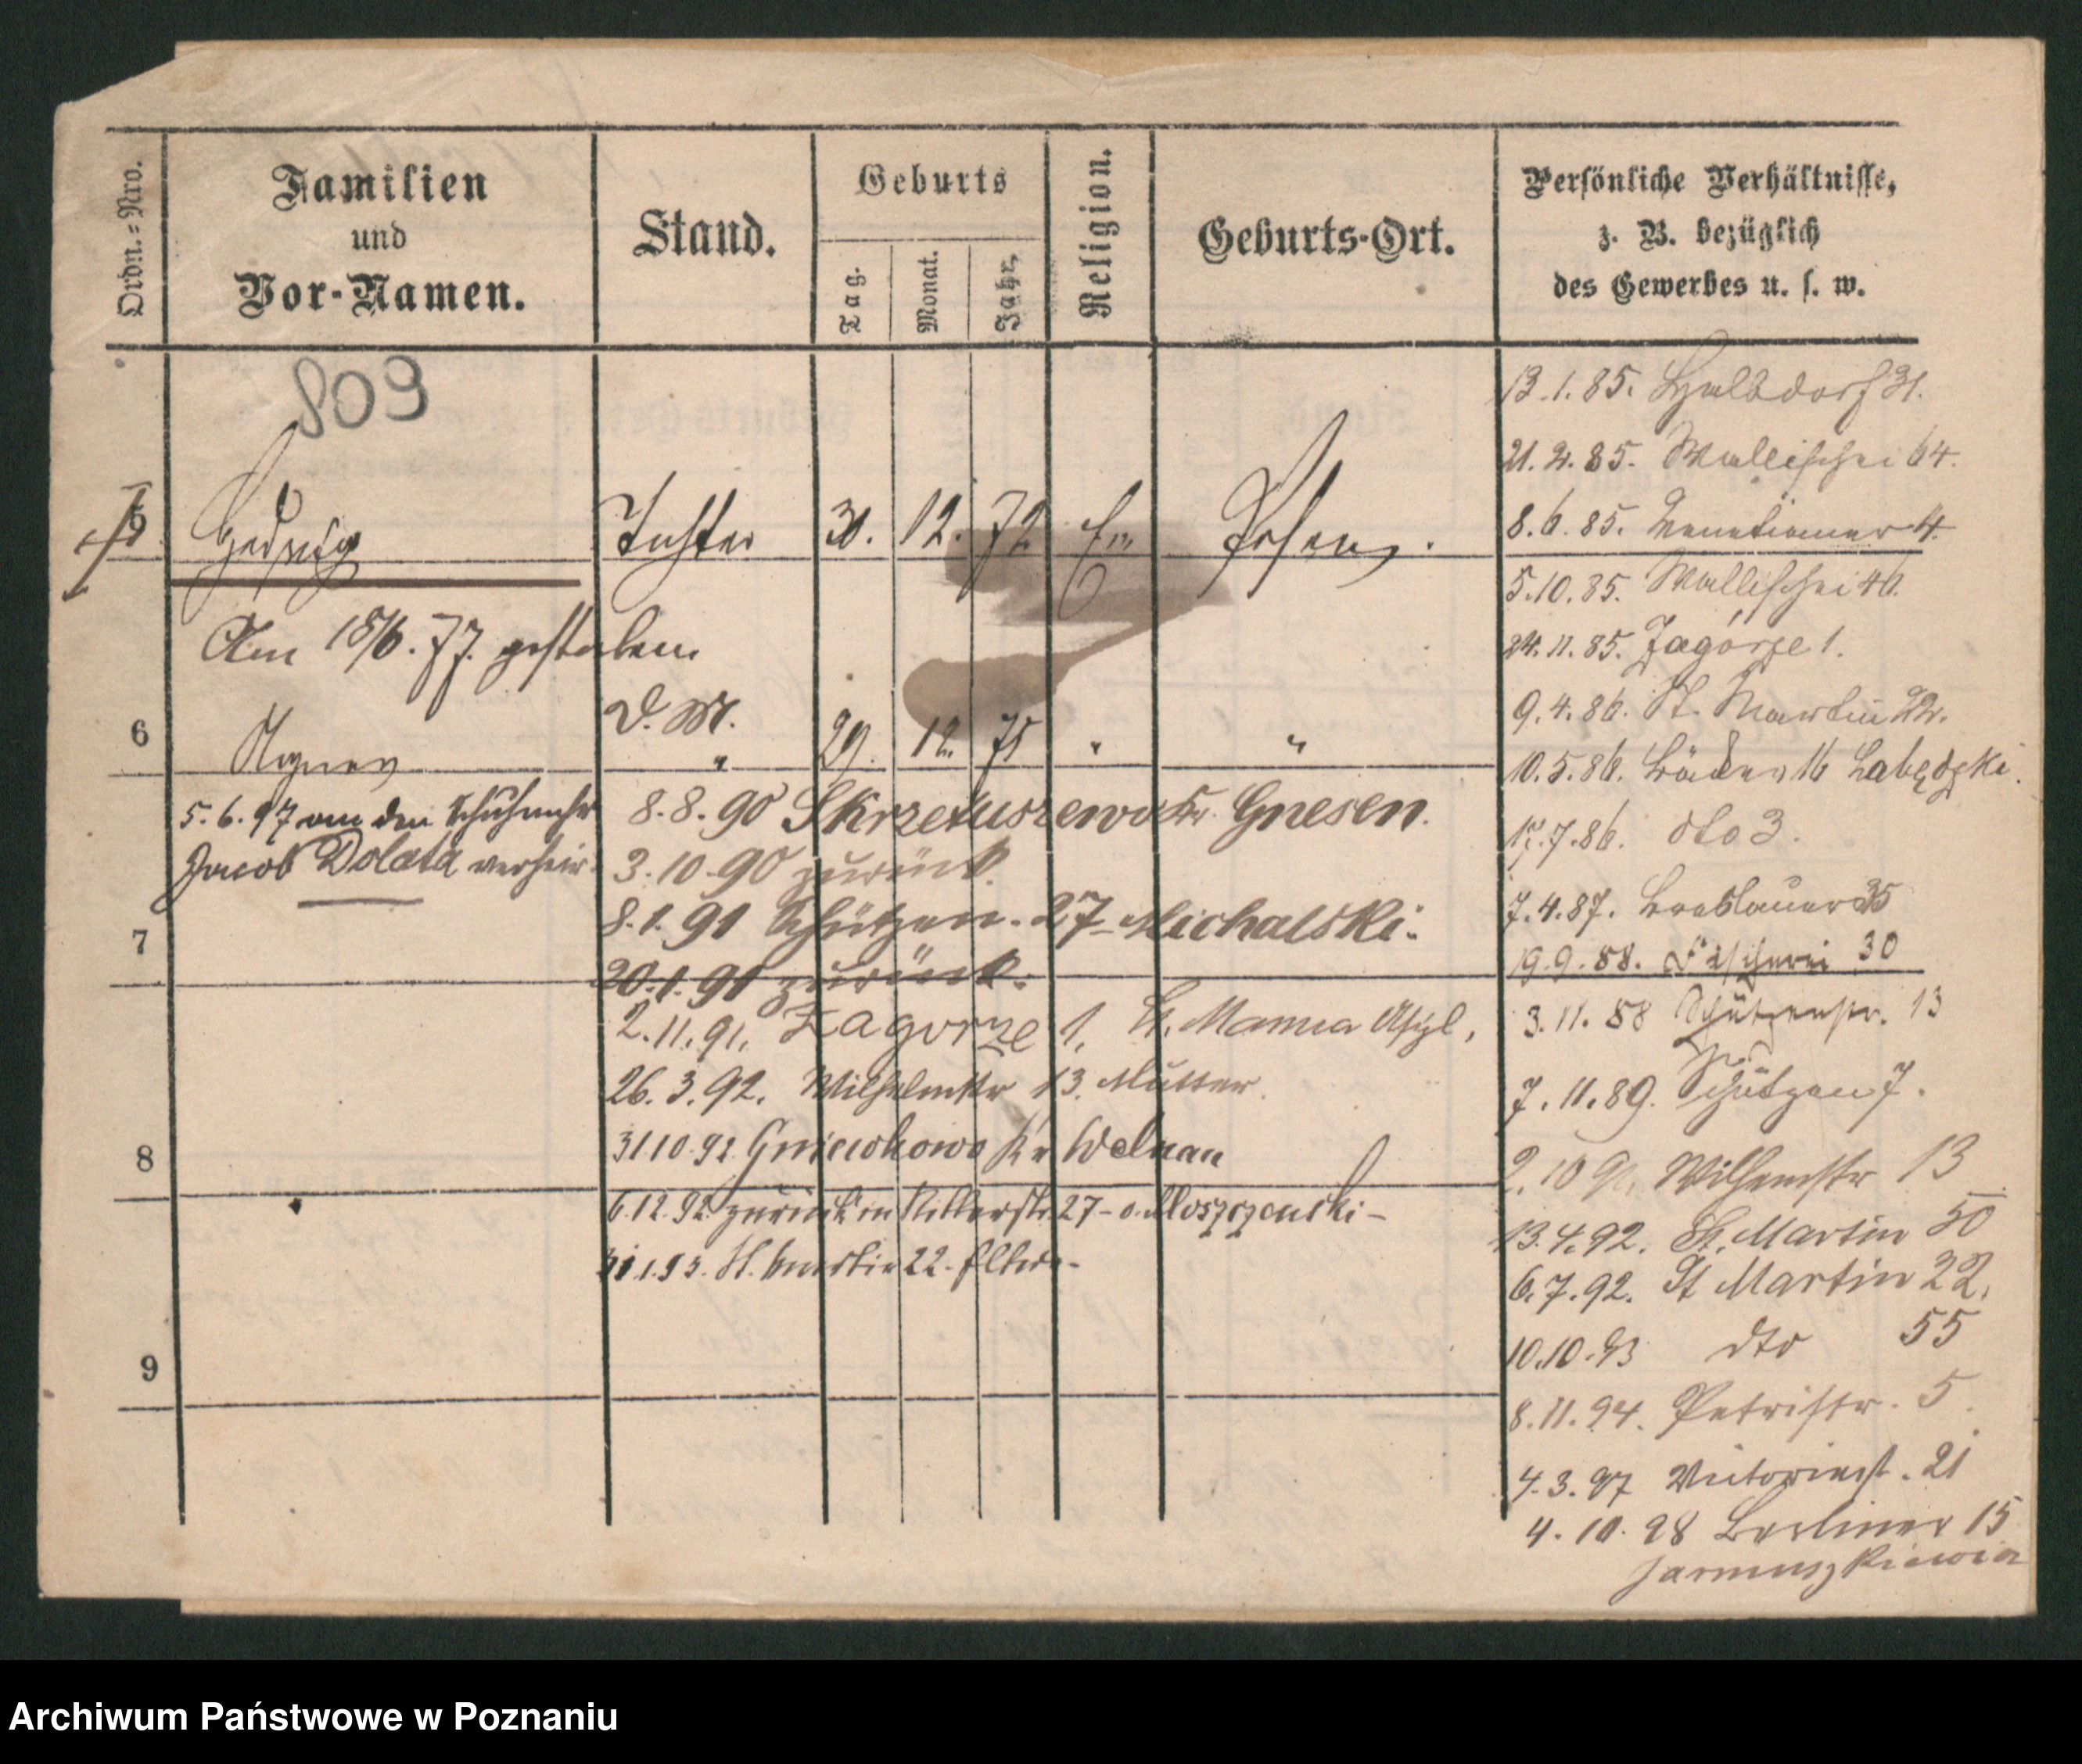 Ordn.-Nro.
Familien
und
Vor-Namen.
Stand.
Geburts
Tag.
Monat.
Jahr.
Religion.
Geburts-Ort.
Persönliche Verhältnisse,
z. B. bezüglich
des Gewerbes u. s. w.
809
5 Hedwig Tochter 30. 12. 72 Posen.
Am 18/6. 77. gestorben
D. M.
6 Agnes " 29. 12. 75 " "
5. 6. 97 an den Schuhmchr
Jacob Dolata verheir.
8. 8. 90 Skrzetuszewo Kr. Gnesen.
3. 10. 90 zurück.
7
8. 1. 91 Schützen. 27 Michalski.
20. 1. 91 zurück.
2. 11. 91. Zagorze 1,
26. 3. 92. Wilhelmstr 13. Mutter.
8
31 10. 92. Gniewkowo Kr Welnau
6. 12. 92 zurück in Ritterstr 27 - b. Moszczenski -
31. 1. 93. St. Martin 22. Eltern -
9
13. 1. 85. Halbdorf 31.
21. 2. 85. Wallischei 64.
8. 6. 85. Venetianer 4.
5. 10. 85. Wallischei 46.
24. 11. 85. Zagórze 1.
9. 4. 86. St. Martin 22.
10. 5. 86. Bäcker 16 Labędzki.
17. 7. 86. dto 3.
7. 4. 87. Breslauer 35
19. 9. 88. Fischerei 30
3. 11. 88 Schützenstr. 13
7. 11. 89. Schützen 7.
2. 10 91. Wilhemstr 13
13. 4. 92. St. Martin 50
6. 7. 92. St Martin 22.
10. 10. 93 dto 55
8. 11. 94. Petristr. 5.
4. 3. 97 Victoriast. 21
4. 10. 98 Berliner 15
Jarmuszkiewicz
Archiwum Państwowe w Poznaniu